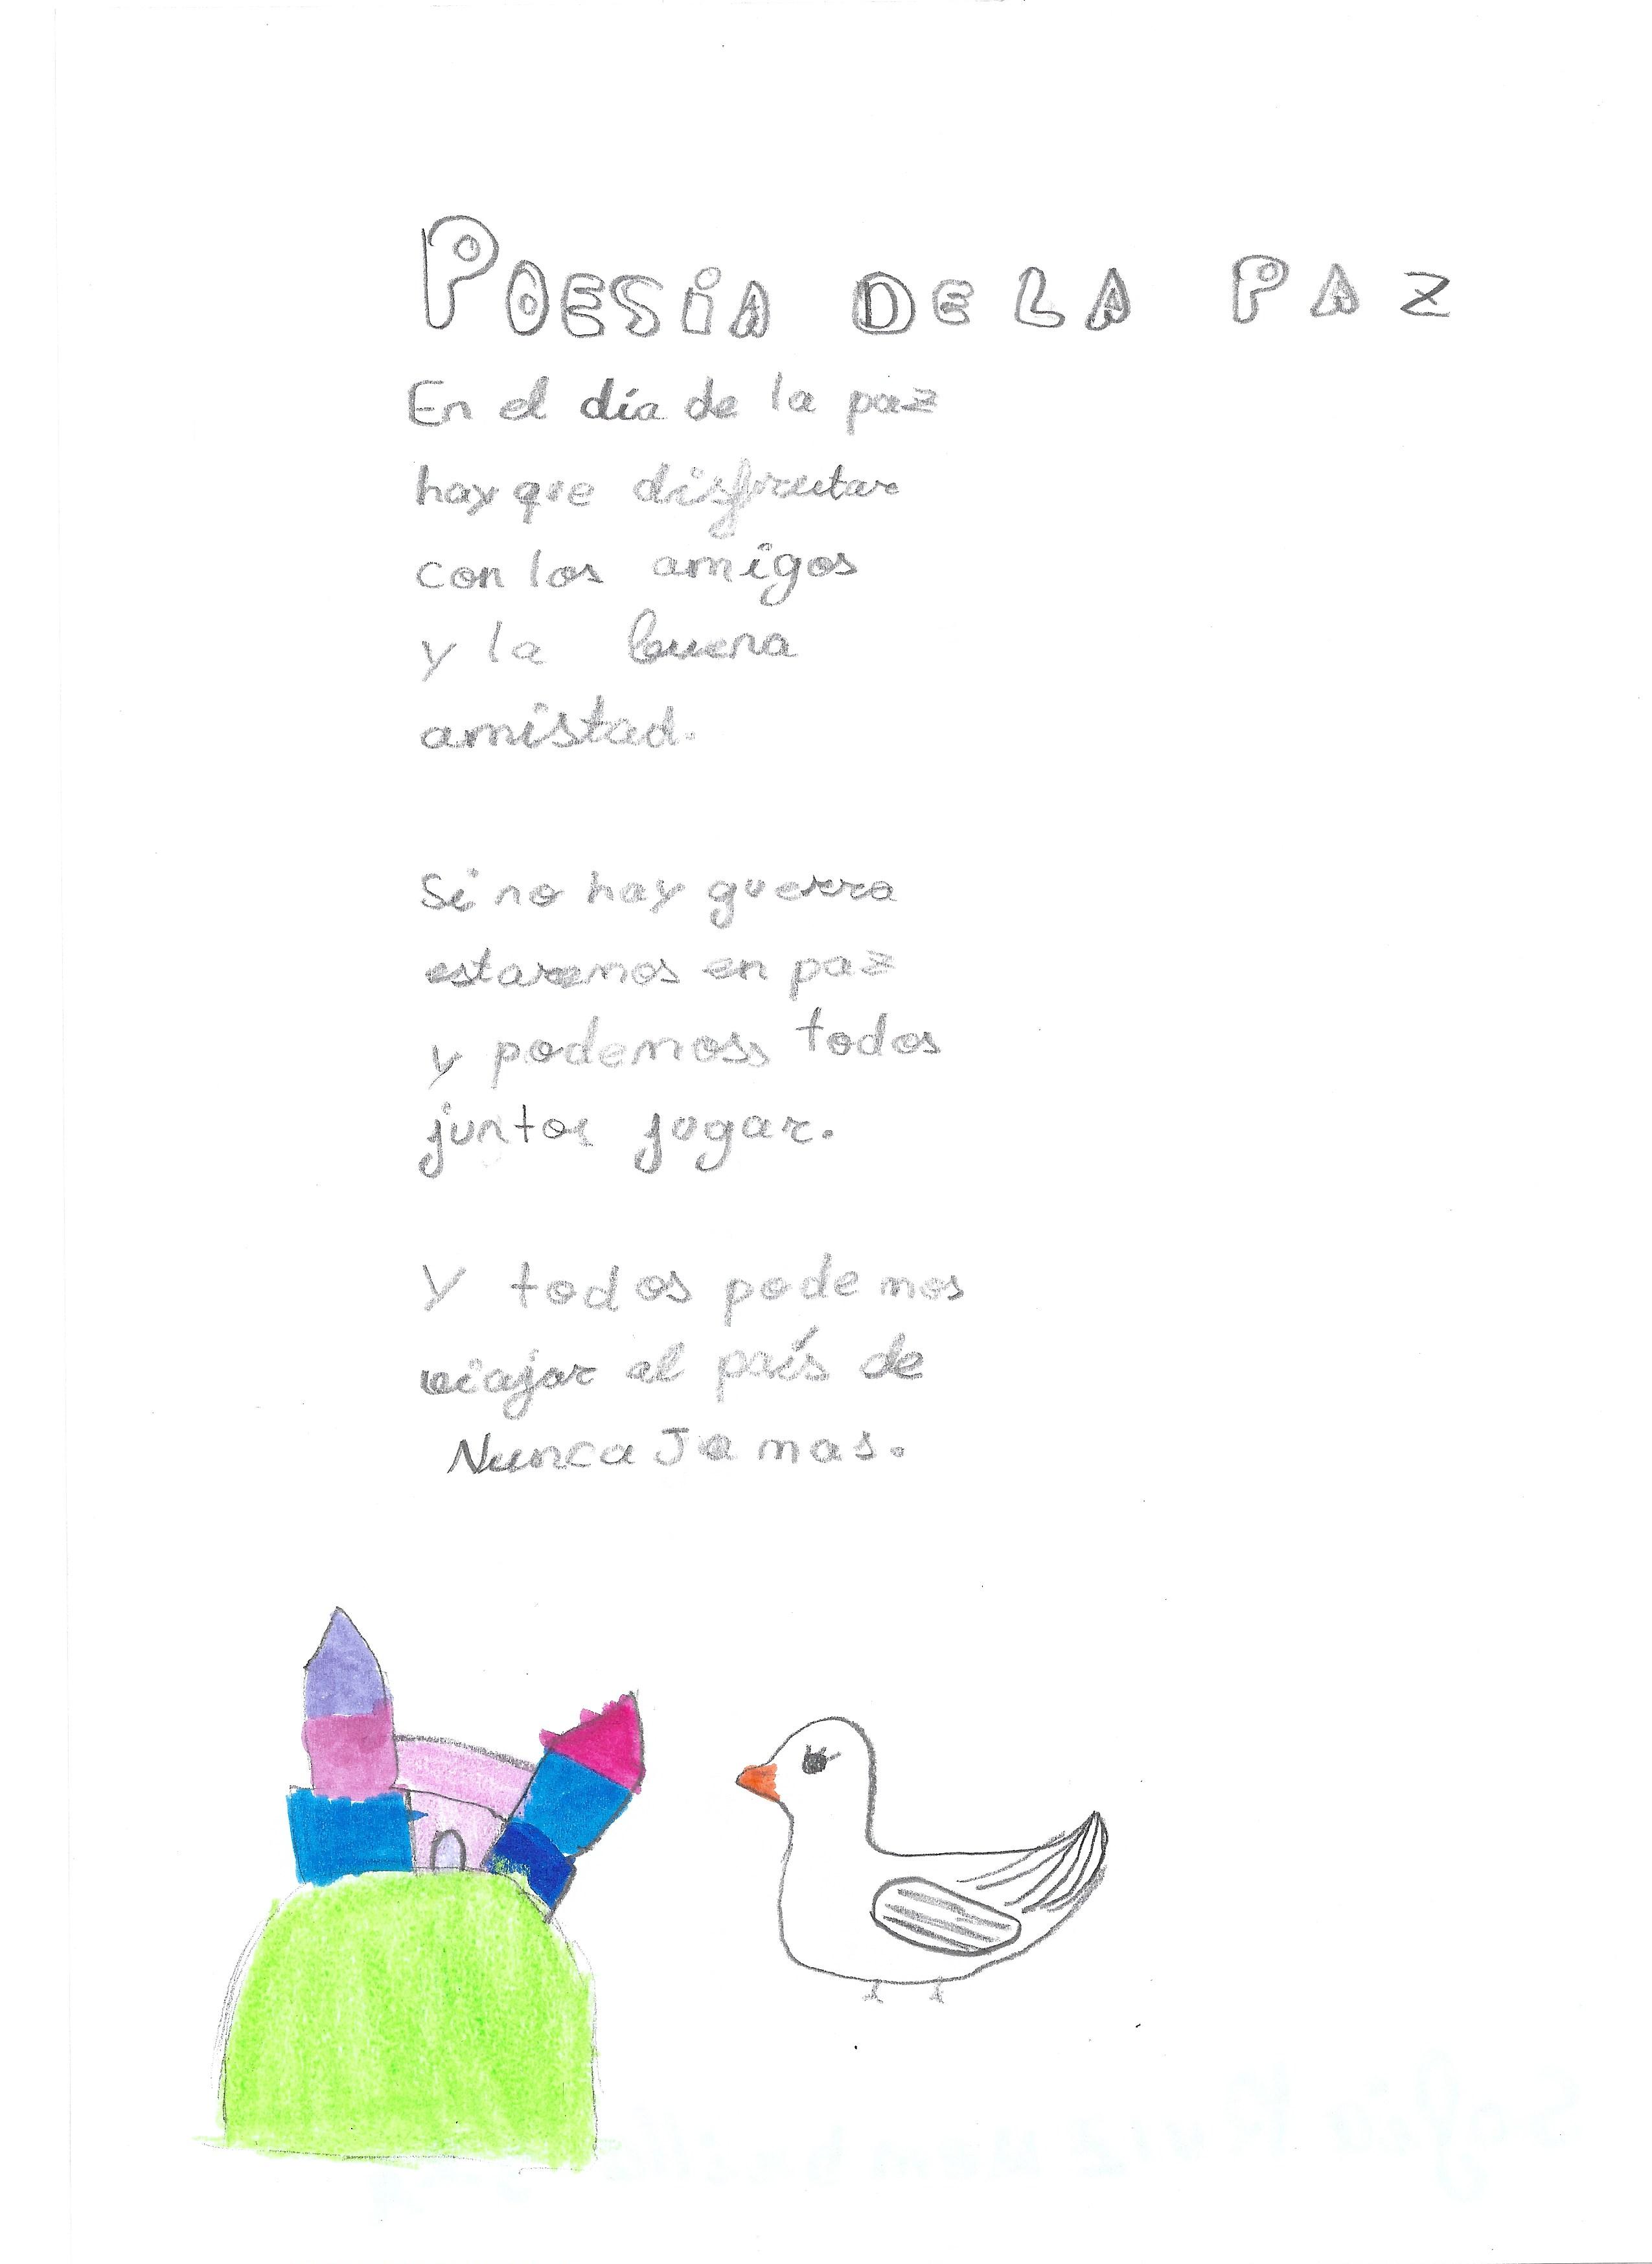 POESIA DE LA PAZ
En el día de la paz
hay que disfrutar
con los amigos
y la buena
amistad.
Si no hay guerra
estaremos en paz
y podemoss todos
juntos jugar.
Y todos podemos
viajar al país de
Nunca Jamas.